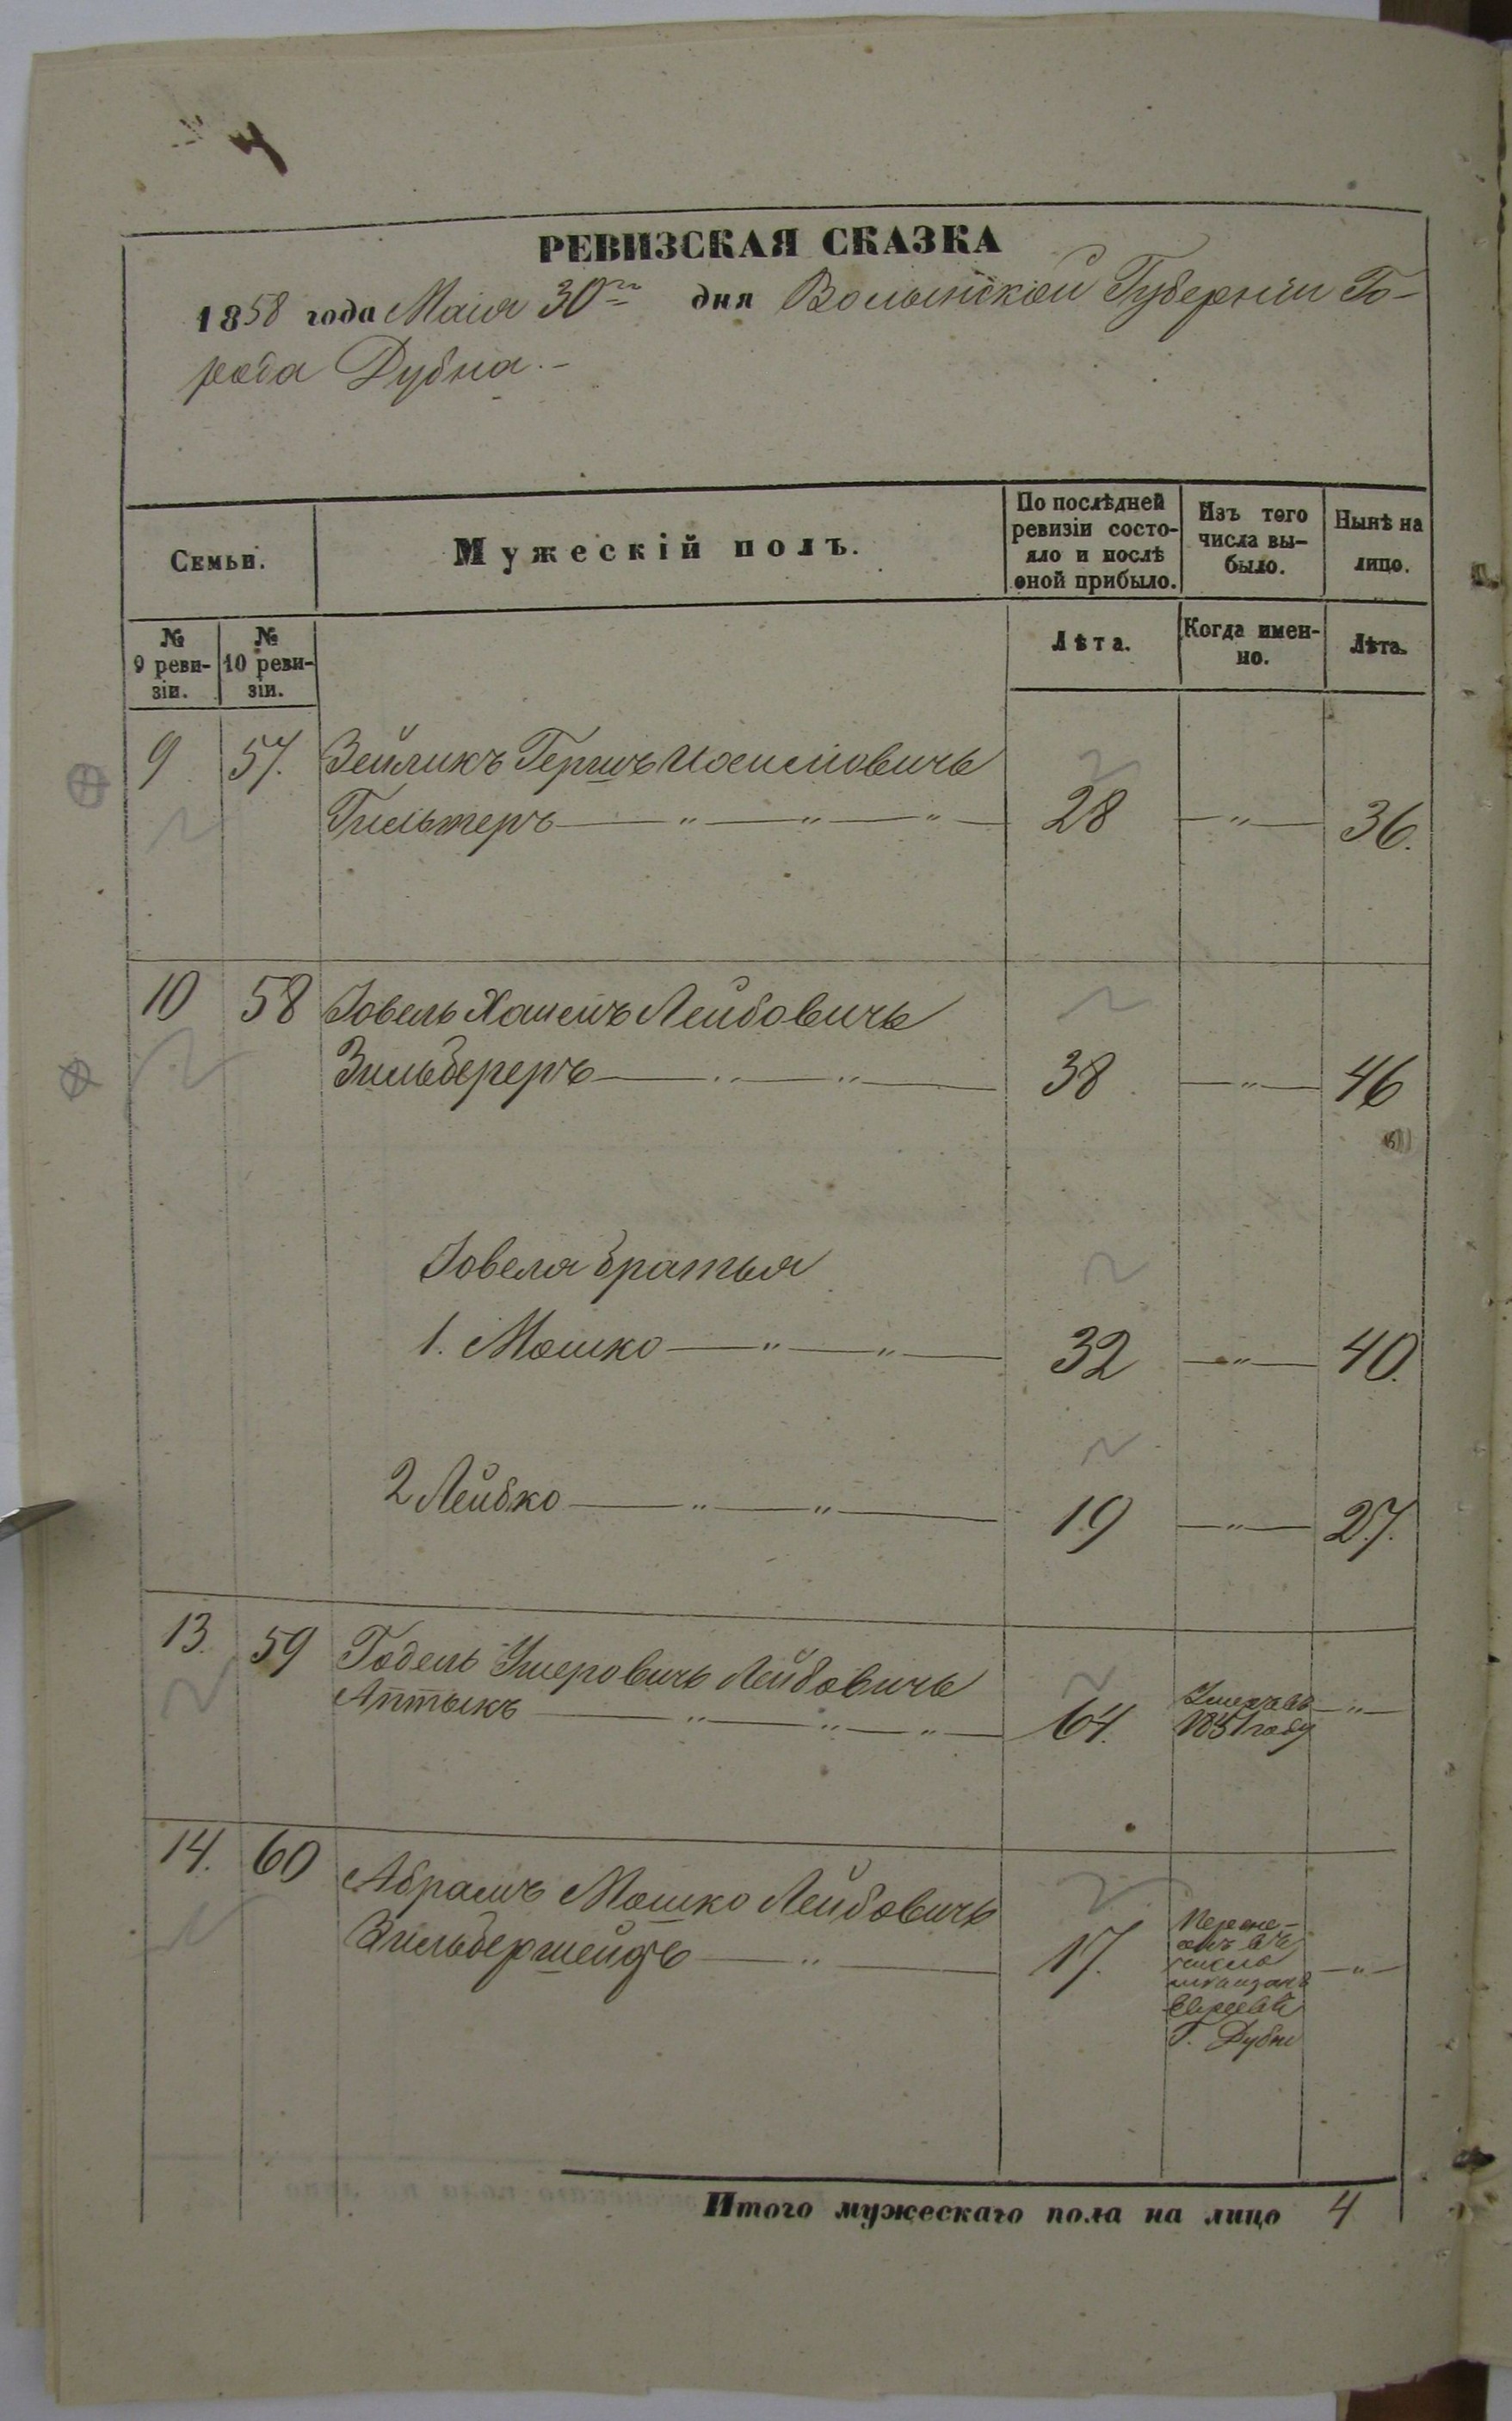 РЕВИЗСКАЯ СКАЗКА
1858 года Маія 30го дня Волынской Губерніи Го-
рода Дубна.-
Семьи.
Мужескій полъ.
По послѣдней
ревизіи состо-
яло и послѣ
оной прибыло.
Изъ того
числа вы-
было.
Нынѣ на
лицо.
№
9 реви-
зіи.
№
10 реви-
зіи.
Лѣта.
Когда имен-
но.
Лѣта.
9 57. Зейликъ Гершъ
Гильтеръ — " — " — " — 28 — " — 36.
10 58 Іовель Хаимъ Лейбовичь
Зильбереръ — " — " — 38 — " — 46
Іовеля братья
1. Мошко — " — " — 32 — " — 40.
2 Лейбко — " — " — 19 — " — 27.
13. 59 Годель Умеровичь Лейбовичь
Аптыкъ — " — " — " — 64. Умеръ въ — " —
1851 году
14. 60 Абрамъ Мошко Лейбовичь
Зильбершейдъ — " — 17. — " —
Перене-
онъ въ
число
мѣщанъ
Евреевъ
Г. Дубно
Итого мужескаго пола на лицо 4